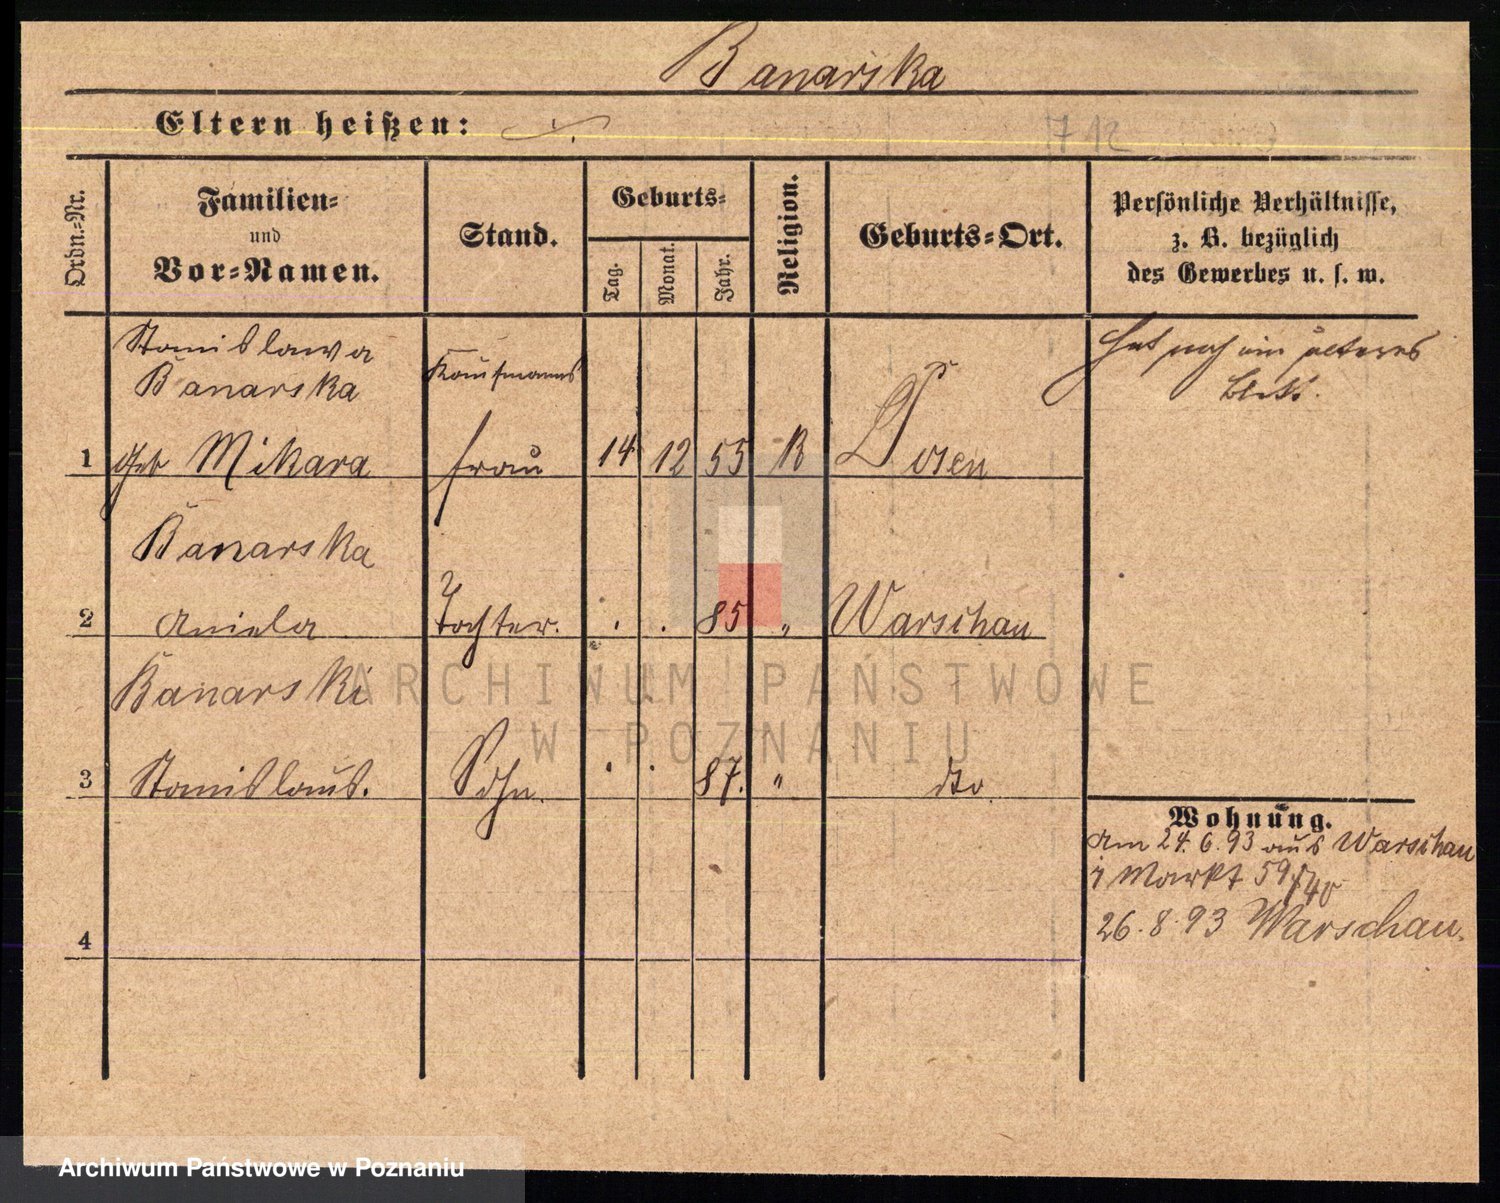 Banarska
Eltern heißen:
712
Ordn.-Nr.
Familien-
und
Vor-Namen.
Stand.
Geburts-
Tag.
Monat.
Jahr.
Religion.
Geburts-Ort.
Persönliche Verhältnisse,
z. B. bezüglich
des Gewerbes u. s. w.
Stanislawa
Banarska
Kaufmanns
Hat noch ein älteres
Blatt.
1 geb Mikara frau 14 12 55 K Posen
Banarska
2 Aniela Tochter. . . 85 " Warschau
Banarski
3 Stanislaus. Sohn. . . 87. " dto
Wohnung.
Am 24.6.93 aus Warschau
Markt 59/40
26.8.93 Warschau.
4
ARCHIWUM PAŃSTWOWE
W POZNANIU
Archiwum Państwowe w Poznaniu